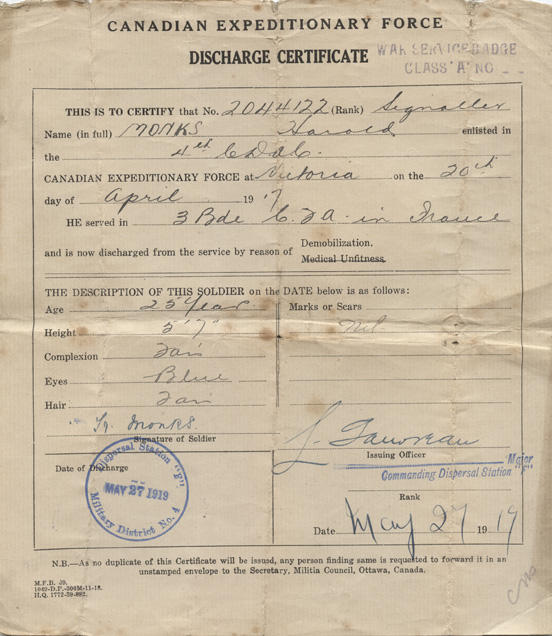 CANADIAN EXPEDITIONARY FORCE
DISCHARGE CERTIFICATE
WAR SERVICE BADGE
CLASS "A" NO
THIS IS TO CERTIFY that No. 2044122 (Rank) Signaller
Name (in full) MONKS Harold enlisted in
the 4th
CANADIAN EXPEDITIONARY FORCE at Victoria on the 20th
day of April 1917
HE served in 3 Bde C.F.A. in France
and is now discharged from the service by reason of Demobilization.
Medical Unfitness.
THE DESCRIPTION OF THIS SOLDIER on the DATE below is as follows:
Age 25 Year
Marks or Scars
Height 5'7"
Nil
Complexion Fair
Eyes Blue
Hair Fair
H. Monks.
Signature of Soldier
Issuing Officer
Major
Commanding Dispersal Station "F"
Rank
Date of Discharge
Dispersal Station "F"
MAY 27 1919
Military District No. 4
Date May 27 1919
N.B.—As no duplicate of this Certificate will be issued, any person finding same is requested to forward it in an
unstamped envelope to the Secretary, Militia Council, Ottawa, Canada.
M.F.D. 39.
H.Q. 1772-39-882.